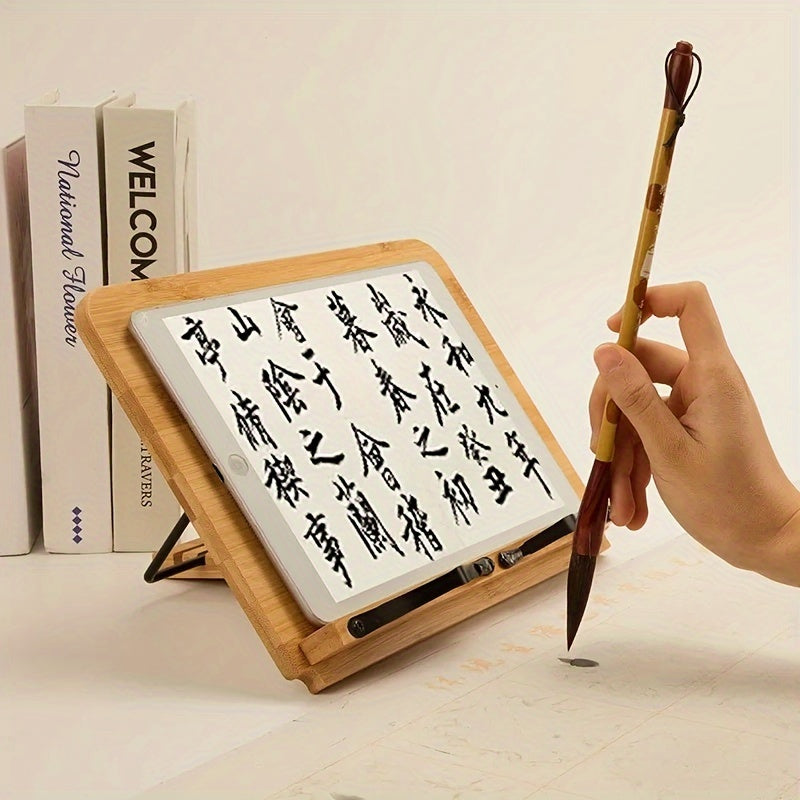 National Flower
WELCOM
TRAVERS
永和九年
歲在癸丑
暮春之初
會于會稽
山陰之蘭
亭脩禊事